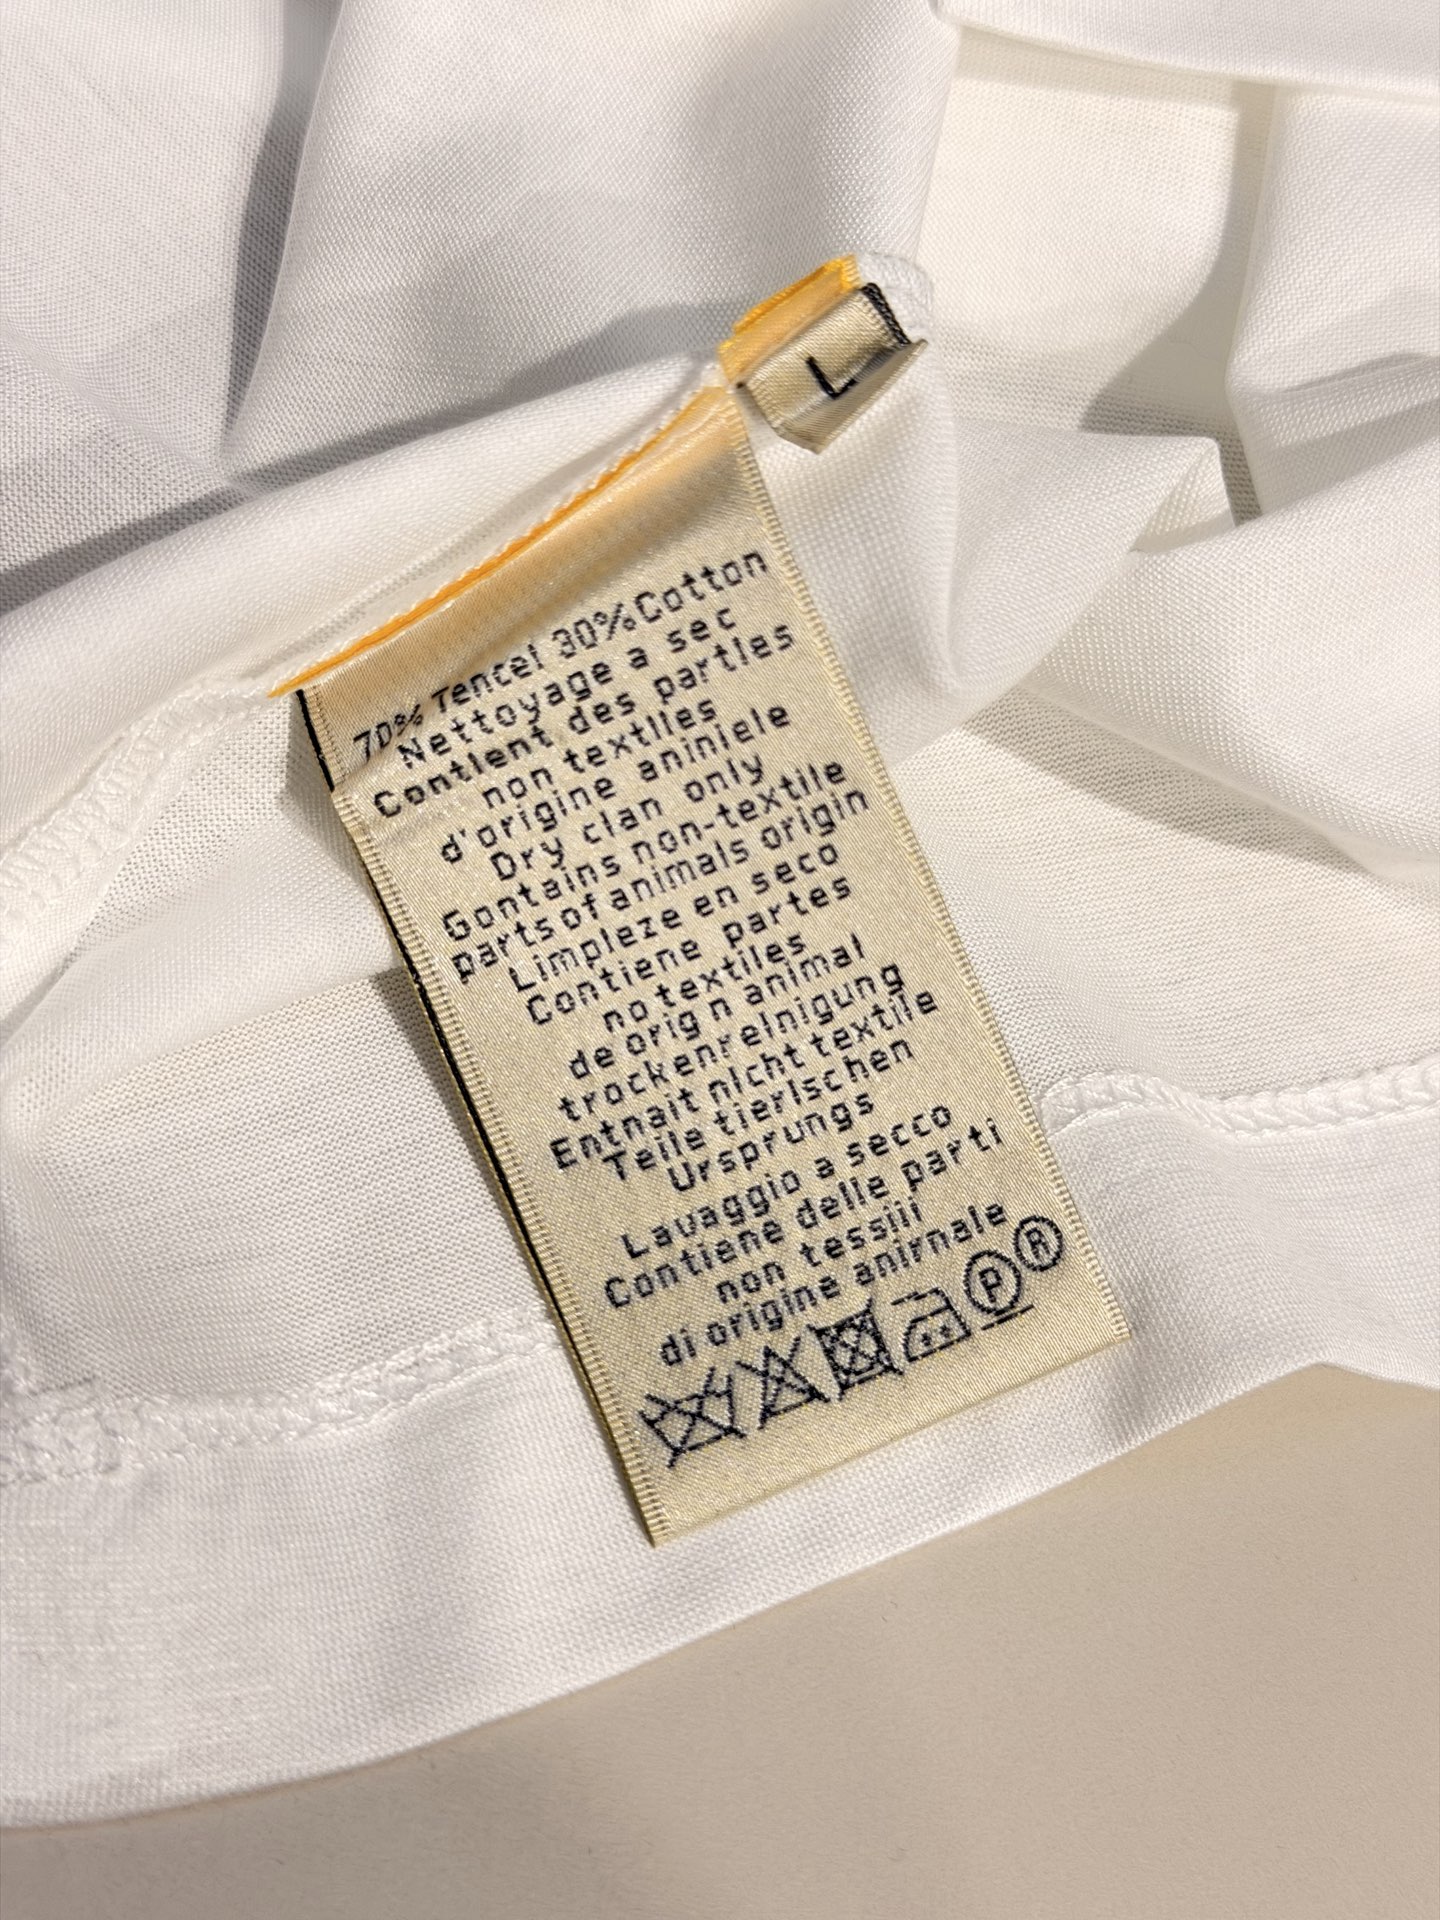 L
70% Tencel 30%Cotton
Nettoyage a sec
Contlent des partles
non textlles
d'origine aniniele
Dry clan only
Gontains non-textile
parts of animals origin
Limpleze en seco
Contiene partes
no textiles
de orig n animal
trockenrelnigung
Entnait nlcht textile
Teile tierlschen
Ursprungs
Lavaggio a secco
Contiene delle parti
non tessiii
di origine anirnale
P R